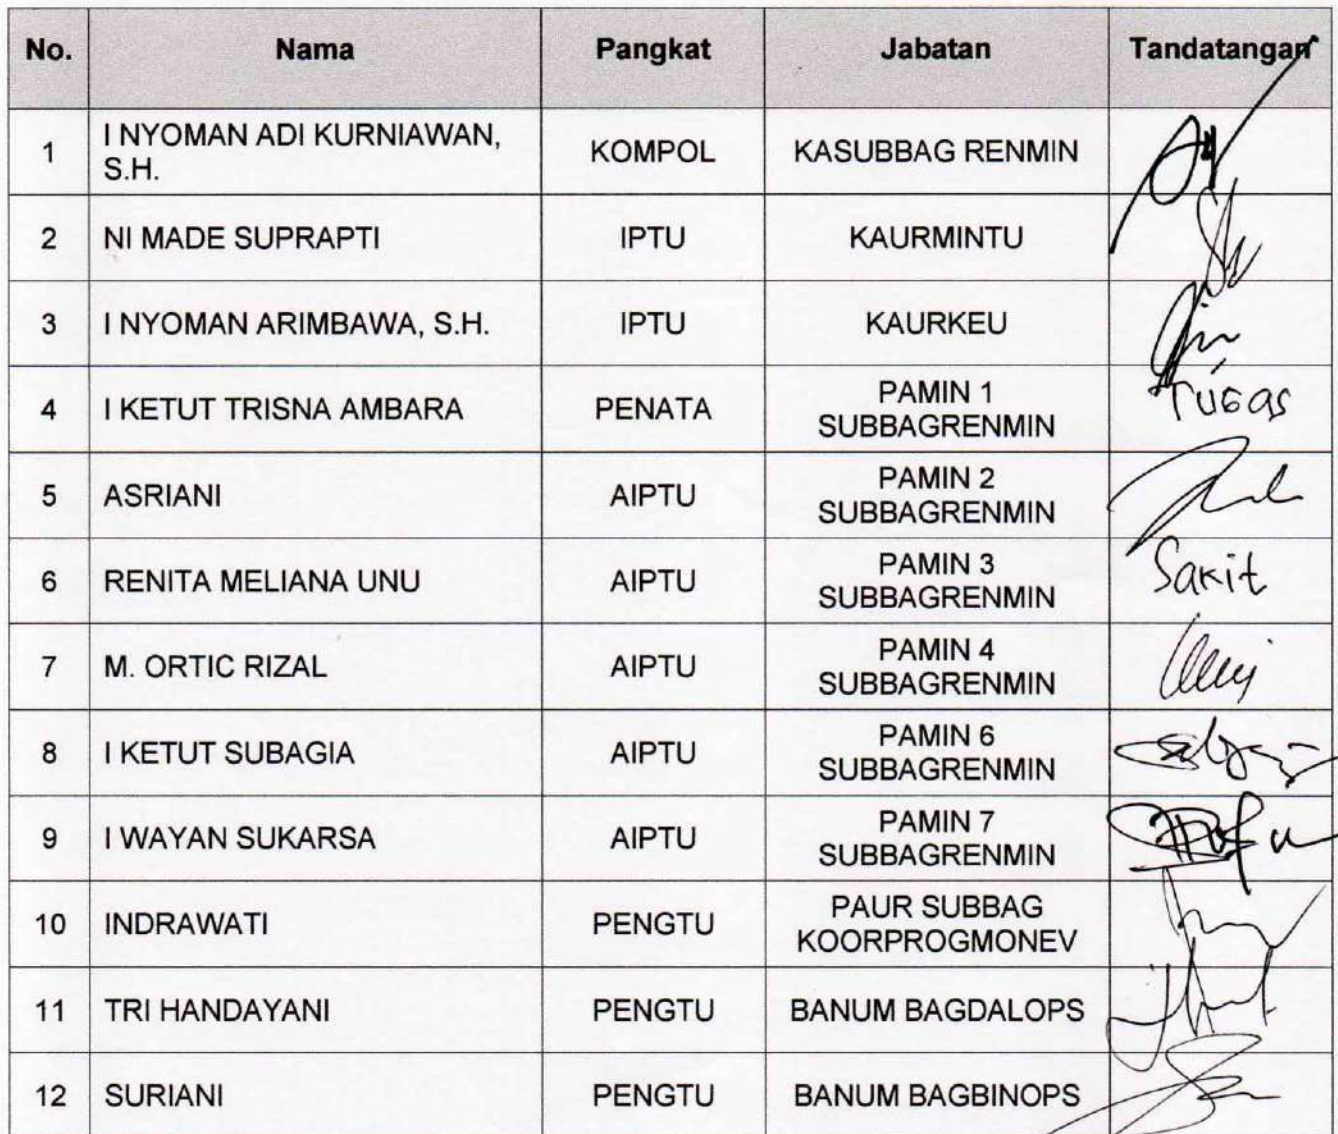 No. Nama Pangkat Jabatan Tandatangan
1 I NYOMAN ADI KURNIAWAN, S.H. KOMPOL KASUBBAG RENMIN
2 NI MADE SUPRAPTI IPTU KAURMINTU
3 I NYOMAN ARIMBAWA, S.H. IPTU KAURKEU
4 I KETUT TRISNA AMBARA PENATA PAMIN 1 SUBBAGRENMIN TUGas
5 ASRIANI AIPTU PAMIN 2 SUBBAGRENMIN
6 RENITA MELIANA UNU AIPTU PAMIN 3 SUBBAGRENMIN Sakit
7 M. ORTIC RIZAL AIPTU PAMIN 4 SUBBAGRENMIN
8 I KETUT SUBAGIA AIPTU PAMIN 6 SUBBAGRENMIN
9 I WAYAN SUKARSA AIPTU PAMIN 7 SUBBAGRENMIN
10 INDRAWATI PENGTU PAUR SUBBAG KOORPROGMONEV
11 TRI HANDAYANI PENGTU BANUM BAGDALOPS
12 SURIANI PENGTU BANUM BAGBINOPS